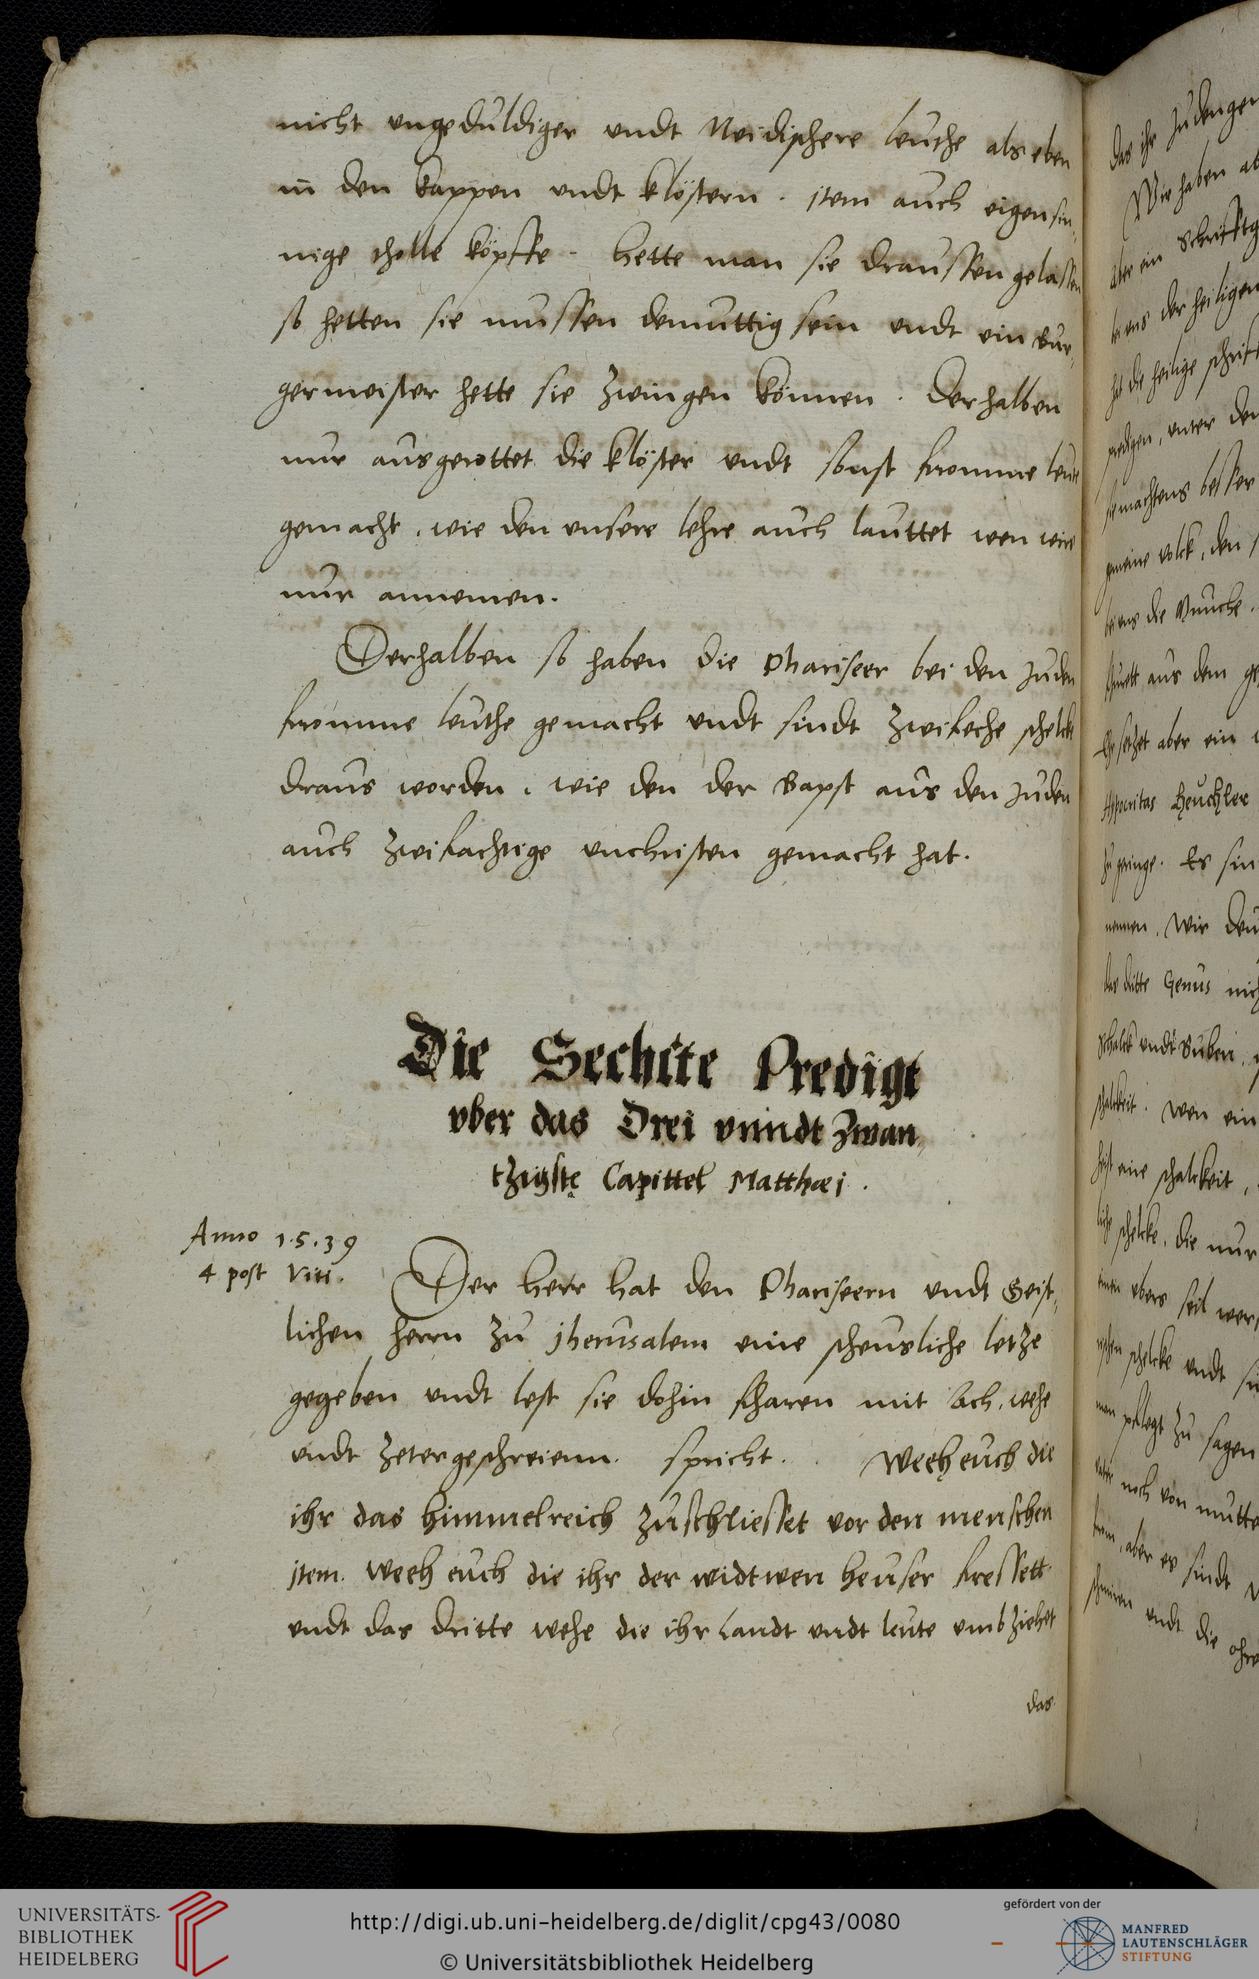 nicht ungeduldiger undt Neidischere leuthe als eben
in den kappen undt klöstern. item auch eigensin,
nige tholle köpffe. hette man sie draussen gelassen
so hetten sie mussen demuttig sein undt ein Bur,
germeister hette sie zwingen können. Derhalben
nur ausgerottet die klöster undt sonst fromme leute
gemacht, wie den unsere lehre auch lauttet wen wirs
nur annemen.
Derhalben so haben die Phariseer bei den Juden
fromme leuthe gemacht undt sindt zwifeche schelcke
draus worden, wie den der Bapst aus den Juden
auch zwifachtige unchristen gemacht hat.
Die Sechste Predigt
vber das Drei vnndt zwan,
tzigste Capittel Matthæi.
Anno 1.5.39
4 post Viti.
Der herr hat den Phariseern undt Geist,
lichen herrn zu Jherusalem eine scheusliche letze
gegeben undt lest sie dohin fharen mit Ach, wehe
undt zetergeschreienn. spricht. Weeh euch die
ihr das himmelreich zuschliesset vor den menschen
Item. Weeh euch die ihr der widtwen heuser fressett
undt das dritte wehe die ihr Landt undt leute umbziehet
das
das ihr Juden
Wir haben
aber ein Schrifft
der heiligen
hat die heilige schrifft
predigen, unter den
besser
gemeine volck, den
die Munche
aus dem
aber ein
Hypocritas Heuchler
geringe. Es sin
nennen. Wir
das dritte Genus
Schalck undt Buben
schalckeit. Wen ein
eine schalckeit,
schelcke, die nur
ubers seil
schelcke undt
man pflegt zu sagen
noch von
aber es sindt
undt die
UNIVERSITÄTS-
BIBLIOTHEK
HEIDELBERG
http://digi.ub.uni-heidelberg.de/diglit/cpg43/0080
© Universitätsbibliothek Heidelberg
gefördert von der
MANFRED
LAUTENSCHLÄGER
STIFTUNG